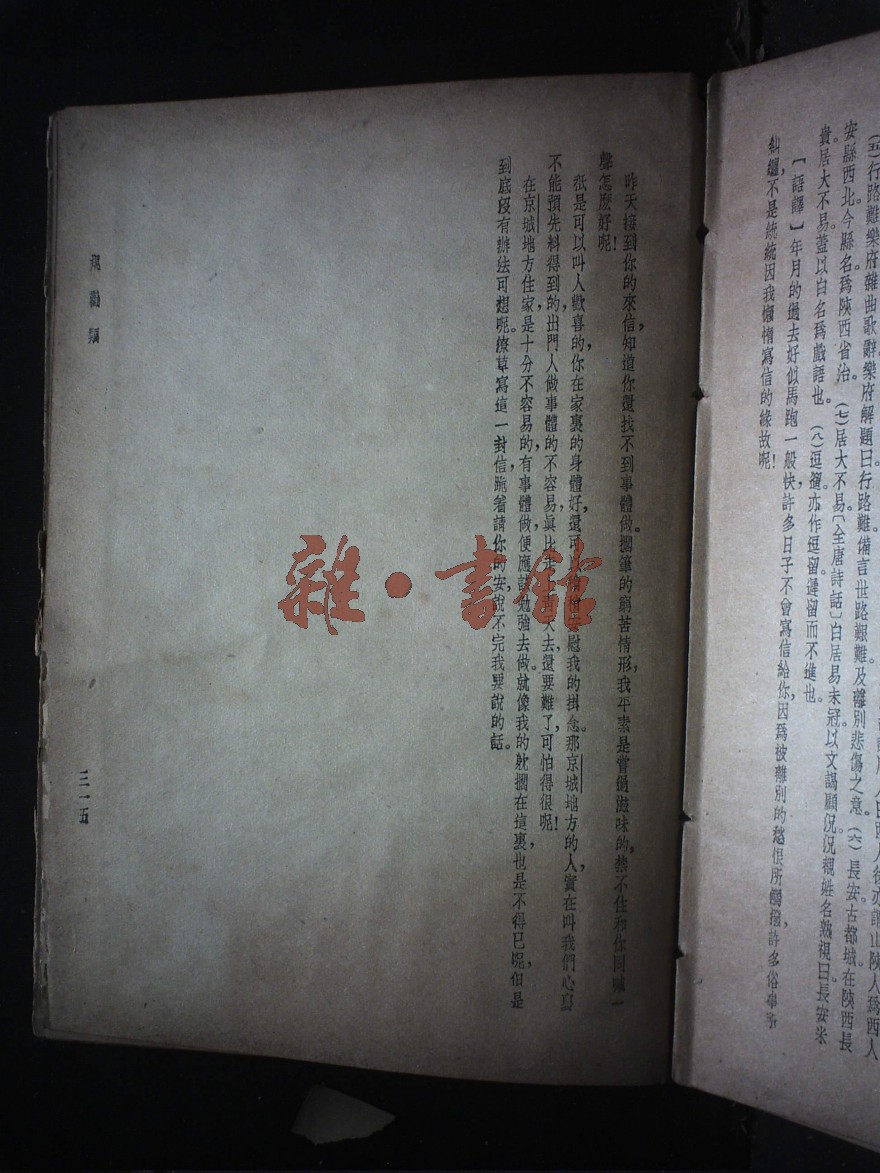 （五）行路難樂府雜曲歌辭樂府解題曰行路難備言世路艱難及離別悲傷之意。（六）長安古都城在陝西長
安縣西北今縣名爲陝西省治。（七）居大不易〔全唐詩話〕白居易未冠以文謁顧況況覩姓名熟視曰長安米
貴居大不易蓋以白名爲戲語也。（八）逗遛亦作逗留遲留而不進也。
〔語譯〕年月的過去好似馬跑一般快許多日子不會寫信給你因爲被離別的愁恨所觸撥許多俗事所
糾纏不是統統因我懶惰寫信的緣故呢！
昨天接到你的來信，知道你還找不到事體做。擱筆的窮苦情形，我平素是嘗過滋味的，禁不住和你同喊一
聲怎麼好呢！
祇是可以叫人歡喜的，你在家裏的身體好，還可安慰我的掛念。那京城地方的人，實在叫我們心寫
不能預先料得到的，出門人做事體的不容易，眞比天去還要難了，可怕得很呢！
在京城地方住家，是十分不容易的，有事體做，便應該勉強去做。就像我的躭擱在這裏，也是不得已呢，但是
到底段有辦法可想呢。潦草寫這一封信，跪着請你的安，說不完我要說的話。
規勸類
三一五
雜·書館